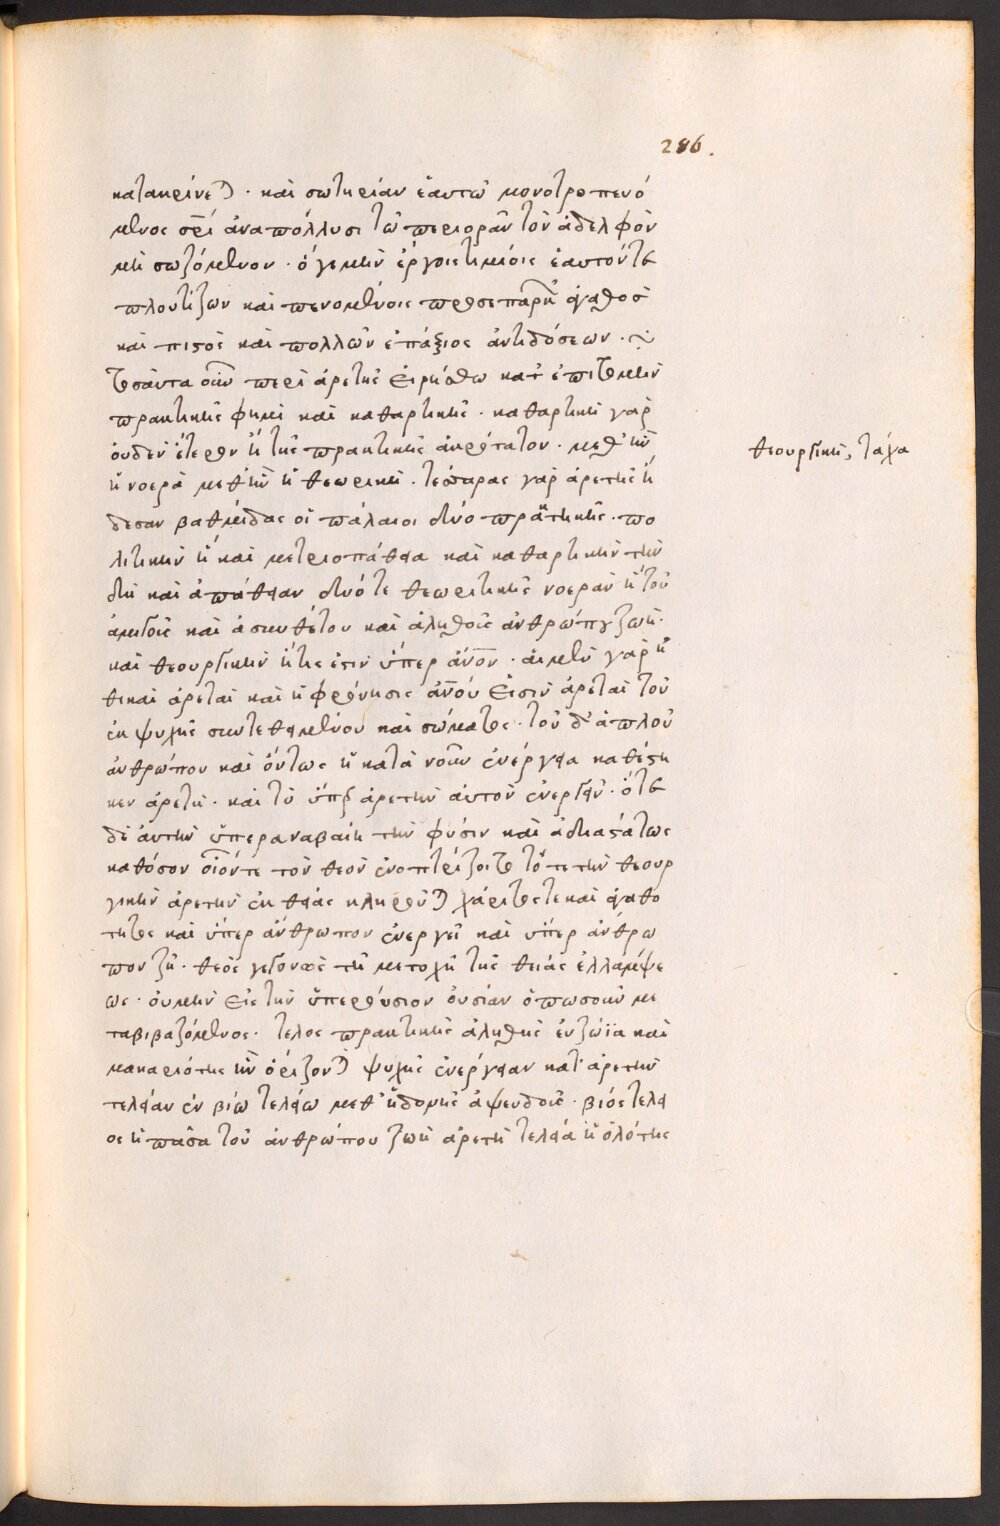 286.
κατακρίνεται· καὶ σωτηρίαν ἑαυτῶ μονοτροπευό
μενος ἀναπόλλυσι τῶ περιορᾶν τὸν ἀδελφὸν
μὴ σωζόμενον· ὅγεμὴν ἔργοις τιμίοις ἑαυτόντε
πλουτίζων καὶ πενομένοις ἀγαθὸς
καὶ πιστὸς καὶ πολλῶν ἐπάξιος ἀντιδόσεων·
τοσαῦτα οὖν περὶ ἀρετῆς εἰρήσθω κατ ἐπιτομὴν
πρακτικῆς φημὶ καὶ καθαρτικῆς· καθαρτικὴ γὰρ
ὀυδὲν ἕτερον ἢ τῆς πρακτικῆς ἀκρότατον· μεθ' ἣν
ἡ νοερὰ μεθ' ἣν ἡ θεωρικὴ· τέσσαρας γὰρ ἀρετῆς ἤ
δεσαν βαθμίδας οἱ πάλαιοι δύο πρακτικῆς· πο
λιτικὴν ἡ καὶ μετριοπάθεια καὶ καθαρτικὴν τὴν
δὴ καὶ ἀπάθειαν δύο τε θεωρητικῆς νοερὰν ἡ τοῦ
ἀμιγοῦς καὶ ἀσυνθέτου καὶ ἀληθοῦς ἀνθρώπου ζωὴ·
καὶ θεουργικὴν ἥτις ἐστὶν ὑπὲρ ἄνον· αἱ μὲν γὰρ ἠ
θικαὶ ἀρεταὶ καὶ ἡ φρόνησις ἀνού εἰσὶν ἀρεταὶ τοῦ
ἐκ ψυχῆς συντεθειμένου καὶ σώματος· τοῦ δ' ἁπλοῦ
ἀνθρώπου καὶ ὄντως ἡ κατὰ νοῦν ἐνέργεια καθέστη
κεν ἀρετὴ· καὶ τὸ ὑπὲρ ἀρετὴν αὐτοῦ ἐνεργεῖν· ὅτε
δι' ἀυτὴν ὑπεραναβαίη τὴν φύσιν καὶ ἀδιαστάτως
καθόσον οἷόντε τὸν θεὸν ἐνοπτρίζοιτο τότε τὴν θεουρ
γικὴν ἀρετὴν ἐκ θείας κληροῦται χάριτός τε καὶ ἀγαθό
τητος καὶ ὑπὲρ ἄνθρωπον ἐνεργεῖ καὶ ὑπὲρ ἄνθρω
πον ζῆ· θεὸς γεγονὼς τῆ μετοχῆ τῆς θείας ἐλλάμψε
ως· ὀυ μὴν εἰς τὴν ὑπερούσιον ὀυσίαν ὁπωσοῦν με
ταβιβαζόμενος· τέλος πρακτικῆς ἀληθῆς ἐυζωΐα καὶ
μακαριότης ἣν ὁρίζονται ψυχῆς ἐνέργειαν κατ' ἀρετὴν
τελείαν ἐν βίω τελείω μεθ' ἡδονῆς ἀψευδοῦς· βίος τέλει
ος ἡ πᾶσα τοῦ ἀνθρώπου ζωὴ ἀρετὴ τελεία ἡ ὁλότης
θεουργικὴ, τάχα